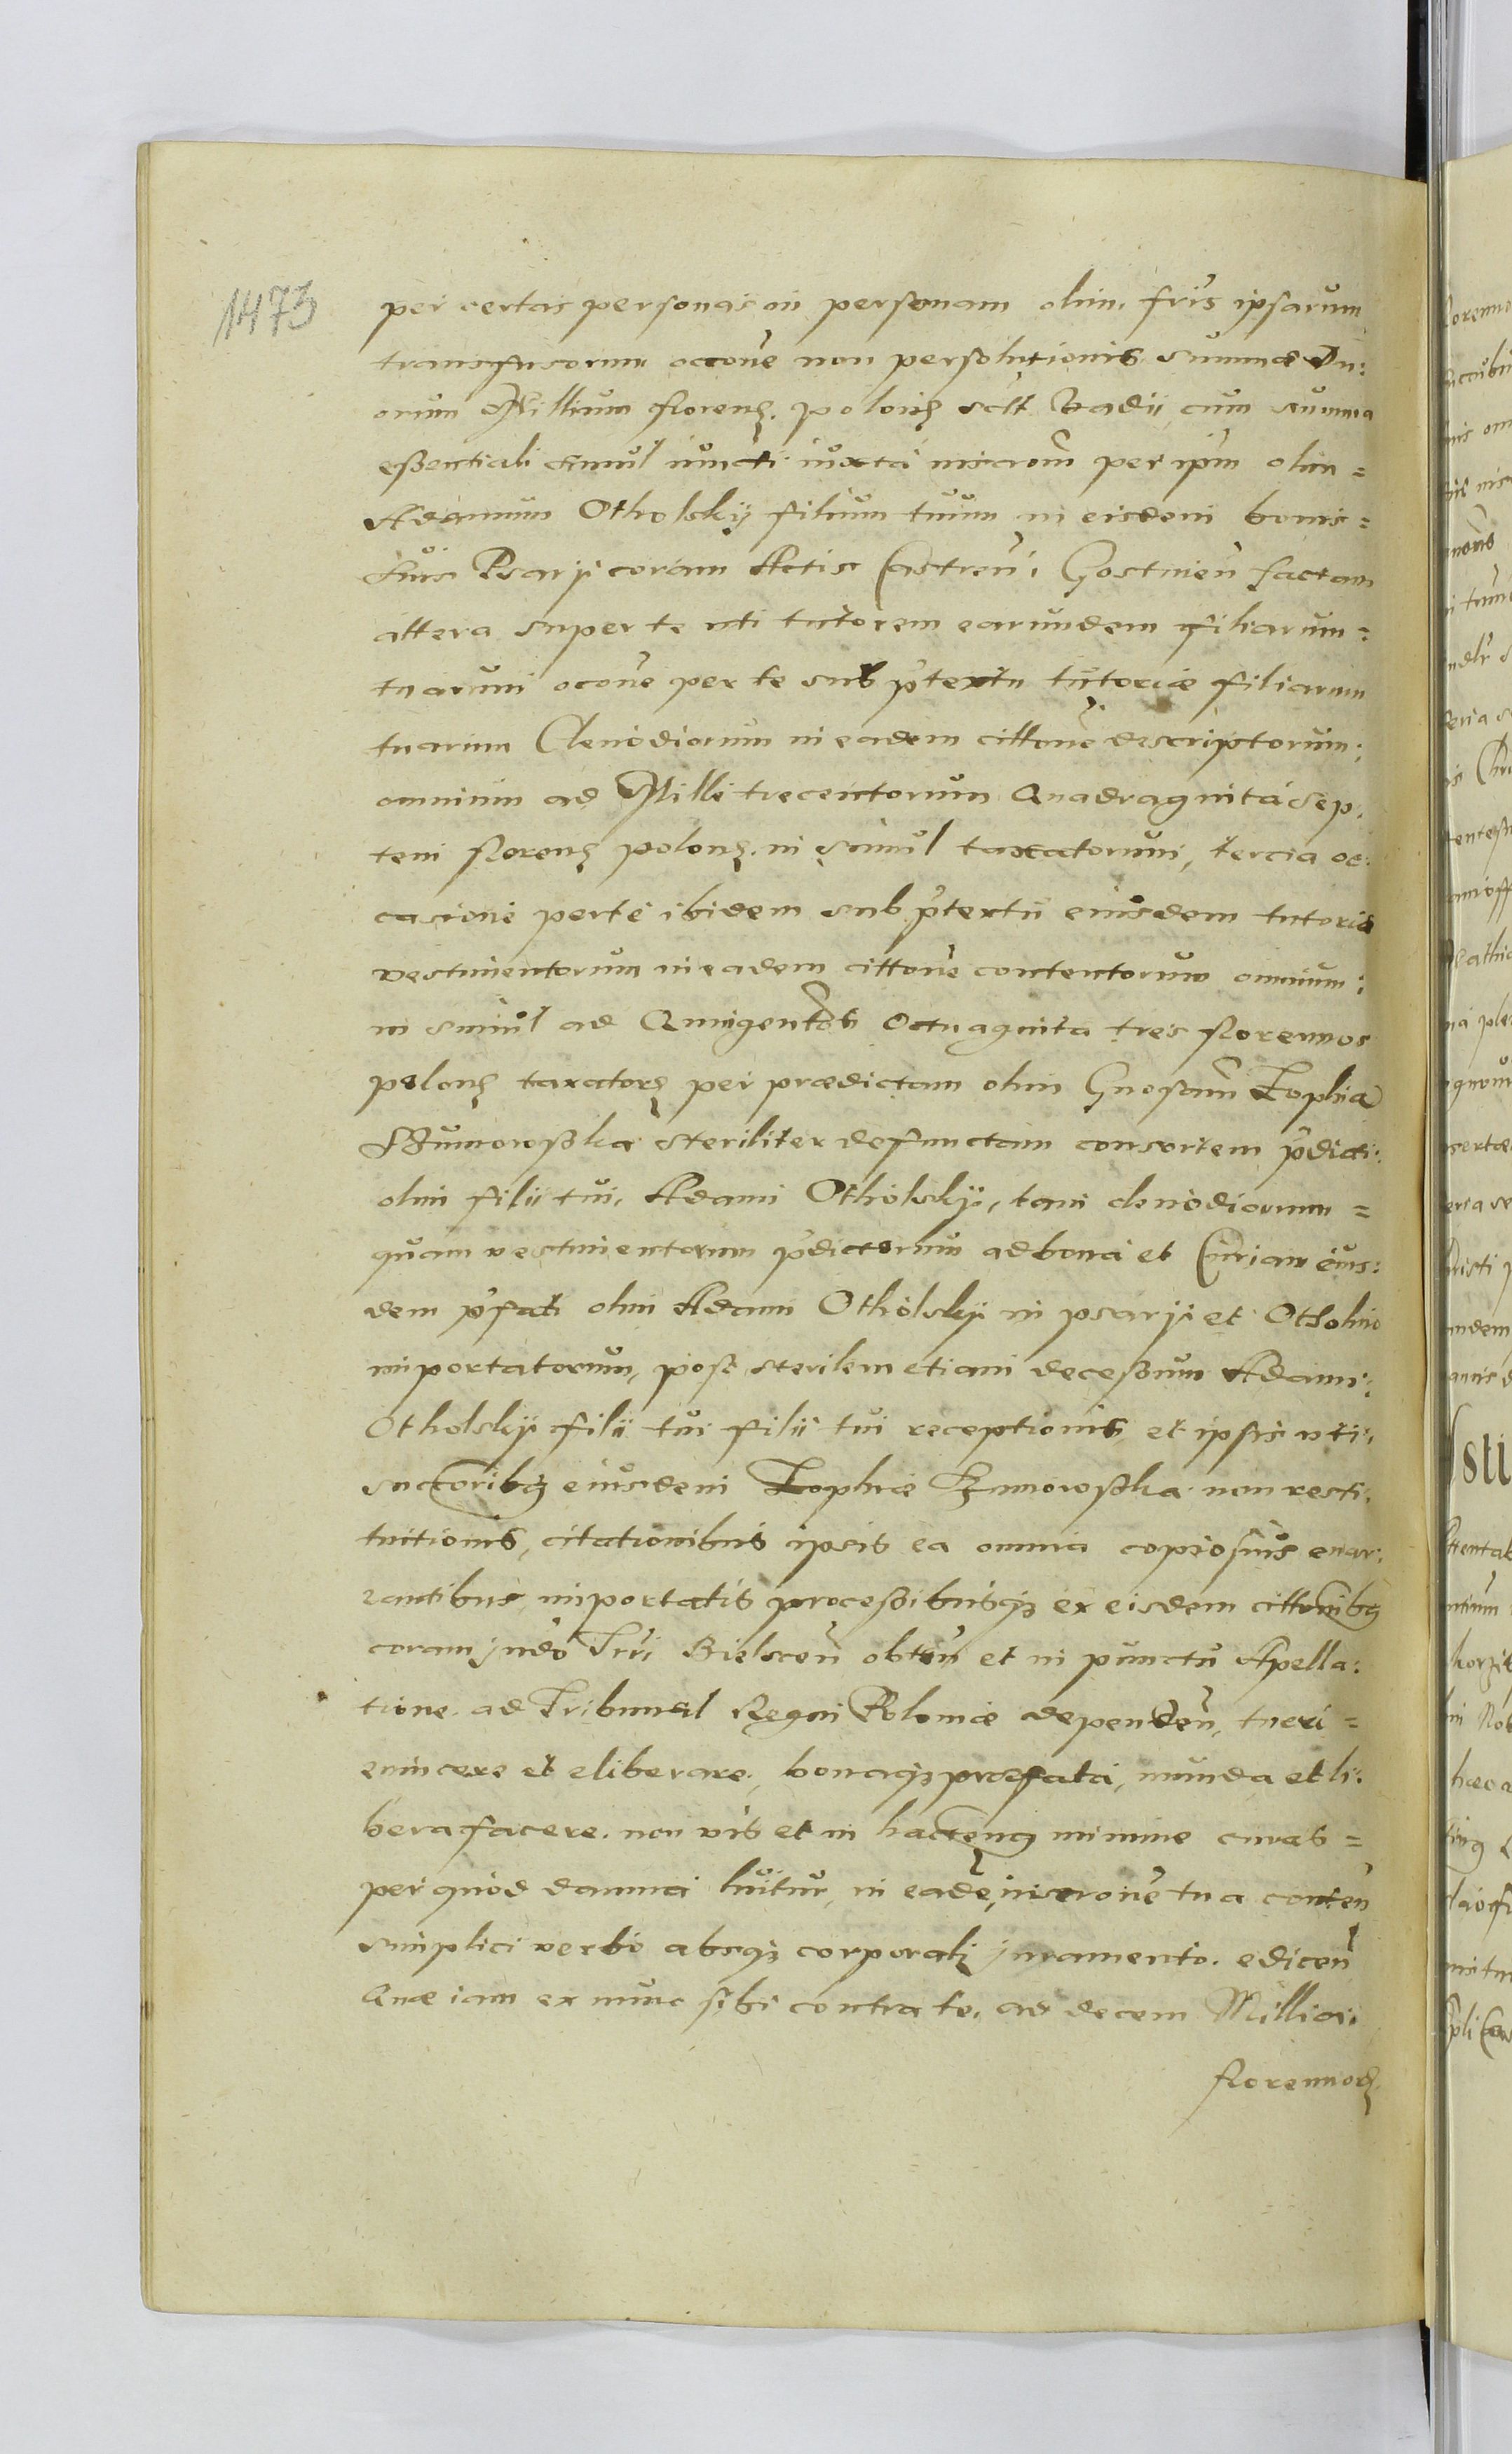 1473
per certas personas in personam olim fris ipsarum
transfusorum occone non persolutionis summæ Du:
orum Millium florenq. poloniq sclt Vadii cum summa
essentiali simul iuncti iuxta inscrom per ipm olim =
Adamum Otholskij filium tuum in eisdem bonis =
suis Psarÿ coram Actis Castren: Gostinien factam
altera super te uti tutorem earundem filiarum =
tuarum occone per te sub ptextu tutoriæ filiarum
tuarum Clenodiorum in eadem cittone descriptorum:
omnium ad Mille trecentorum Quadraginta sep:
tem florenq polonq. in simul taxatorum, tercia oc:
casione per te ibidem sub ptextu eiusdem tutoriæ
vestimentorum in eadem cittone contentorum omnium:
in simul ad Quingentos Octuaginta tres florenos
polonq taxatorq per prædictam olim Gnosam Zophia
Szumowßka steriliter defunctam consortem pdicti:
olim filii tui, Adami Otholskÿ, tam clenodiorum =
quam vestimentorum pdictorum ad bona et Curiam eius:
dem pfati olim Adami Otholskÿ in psarÿ et Otholino
importatorum, post sterilem etiam decessum Adami:
Otholskÿ filii tui filii tui receptionis et ipsis uti,
suctoribq eiusdem Zophiæ Szumowßka non resti,
tutionis, citationibus ipsis ea omnia copiosius enar:
rantibus, importatis processibusq ex eisdem cittonibq
coram judo Trri Bielscen obten et in punctu Apella:
tione ad Tribunal Regni Poloniæ dependen, tueri =
evincere et eliberare, bonaq præfata, munda et li:
bera facere non vis et in hactenq minime curas =
per quod damna luitur, in eade, inscrone tua conten
simplici verbo absq corporali juramento. edicen
Quæ iam ex nunc sibi contra te, ad decem Millia:
florenorq